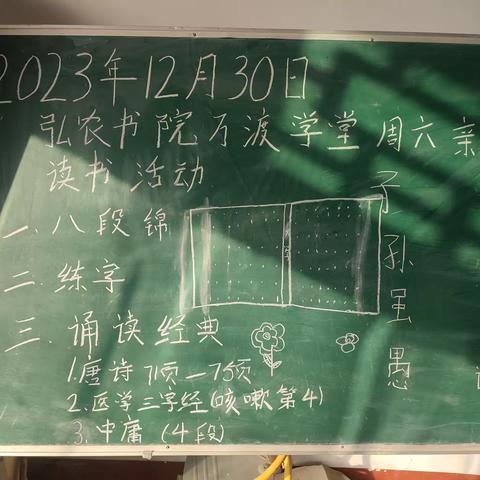 2023年12月30日
弘农书院万渡学堂周六亲
读书活动
一.八段锦
二.练字
三.诵读经典
1.唐诗71页—75页
2.医学三字经(咳嗽第4)
3.中庸(4段)
子孙虽愚